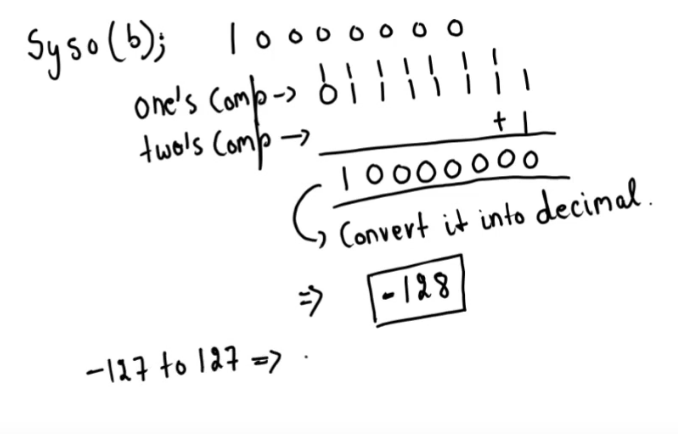 Syso(b); 10000000
one's Comp -> 01111111
two's Comp -> + 1
10000000
Convert it into decimal.
=> -128
-127 to 127 =>